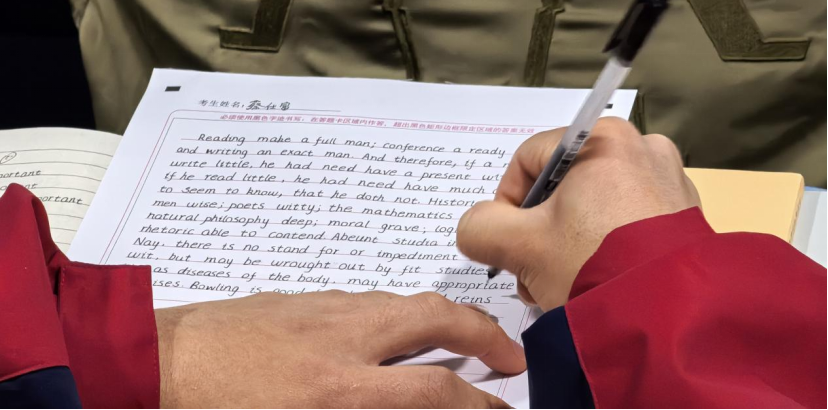 考生姓名:蔡仕富
必须使用黑色字迹书写;在答题卡区域内作答,超出黑色矩形边框限定区域的答案无效
Reading make a full man; conference a ready
and writing an exact man. And therefore, if a
write little, he had need have a present wit
if he read little, he had need have much
to seem to know, that he doth not. Histor
men wise; poets witty; the mathematics
natural philosophy deep; moral grave; log
rhetoric able to contend. Abeunt studia in
Nay, there is no stand for or impediment
wit, but may be wrought out by fit studies
as diseases of the body, may have appropriate
ises. Bowling is good reins
ortant
nt
portant